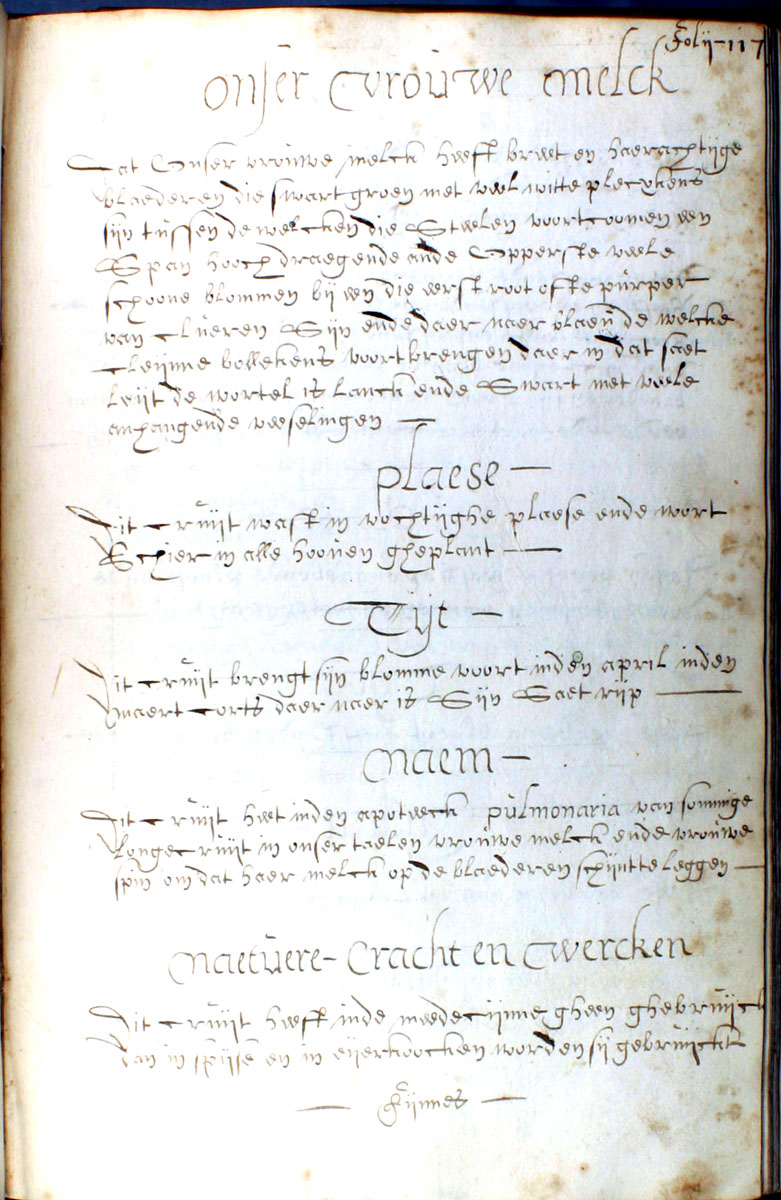 Folij-117
Onser Vrouwe Melck
Dat Onser vrouwe melck heeft breet en haerachtijge
blaederen die swart groen met veel witte pleckens
sijn tussen de welcken die Steelen voortcoomen een
Span hooch draegende ande Opperste veele
schoone blommen bij een die eerst root ofte purper
van Clueren Sijn ende daer naer blaeu de welcke
Cleijnne bollekens voortbrengen daer in dat saet
leijt de wortel is lanck ende Swart met veele
anhangende veeselingen —
plaese —
Dit Cruijt wast in vochtijghe plaese ende wort
Schier in alle hooven gheplant —
Tijt —
Dit Cruijt brengt sijn blomme voort inden april inden
maert Corts daer naer is Sijn Saet rijp —
Naem —
Dit Cruijt heet inden apoteeck pulmonaria van sommige
longe Cruijt in onser taelen vrouwe melck ende vrouwe
spin om dat haer melck op de blaederen schijnt te leggen —
Naetuere- Cracht en Wercken
Dit Cruijt heeft inde meedecijnne gheen ghebruijck
dan in spijse en in eijerkoocken worden sij gebruijckt
— Fijnnes —